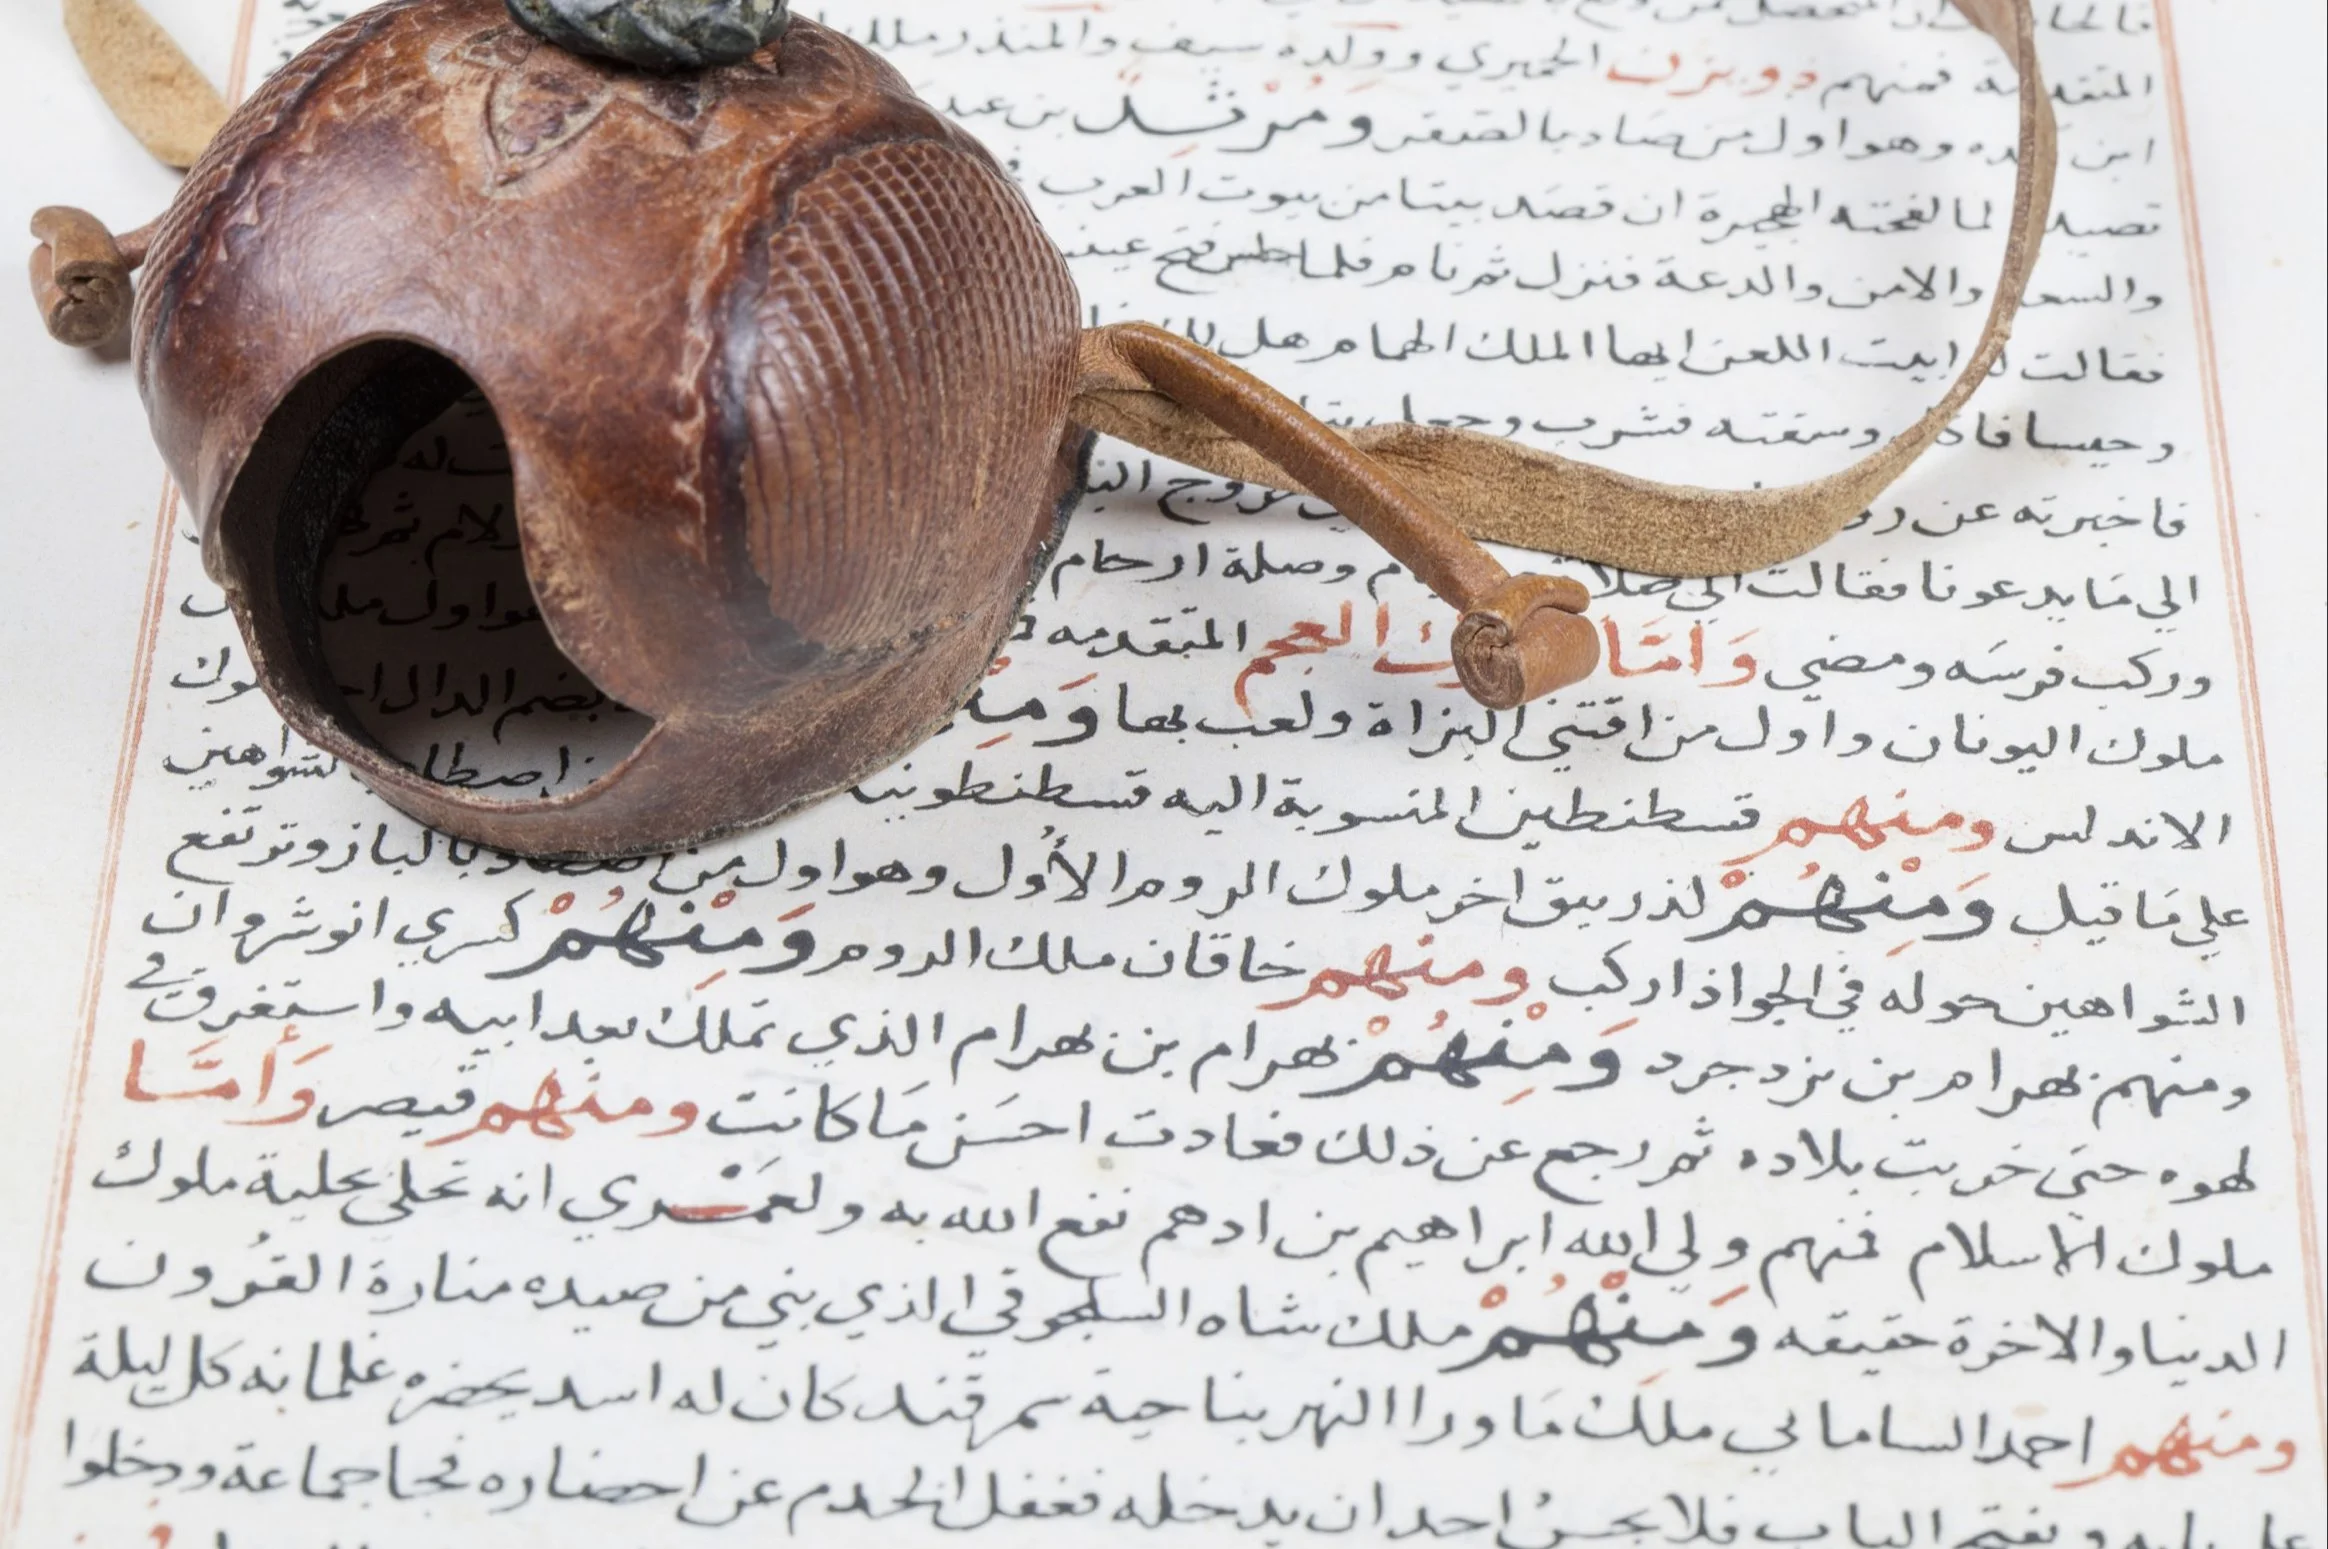 المتقدمة فمنهم ذو يزن الحميري وولده سيف والمنذر ملك
وهو اول من صاد بالصقر ومرثد بن عبد
لما لفحته الهجيرة ان قصد بيتا من بيوت العرب
والامن والدعة فنزل ثم نام فلما فتح عينيه
فقالت ابيت اللعن ايها الملك الهمام هل لك
وحيسا وسقته فشرب وجعل
فاخبرته عن
الي ما يدعونا فقالت الي صلا وصلة ارحام
وركب فرسه ومضي واما العجم المتقدمه
ملوك اليونان واول من اقتني البزاة ولعب بها ملوك
الاندلس ومنهم قسطنطين المنسوبة اليه قسطنطونية الشواهين
علي ما قيل ومنهم لذريق اخر ملوك الروم الأول وهو اول من بالباز وترتفع
الشواهين حوله في الجو اذا ركب ومنهم خاقان ملك الروم ومنهم كسري انوشروان
ومنهم بهرام بن يزدجرد ومنهم بهرام بن بهرام الذي تملك بعد ابيه واستغرق في
لهوه حتى خربت بلاده ثم رجع عن ذلك فعادت احسن ما كانت ومنهم قيصر وأما
ملوك الاسلام فمنهم ولي الله ابراهيم بن ادهم نفع الله به ولعمري انه تحلي بحلية ملوك
الدينا والاخرة حقيقه ومنهم ملك شاه السلجوقي الذي بني من صيده منارة القرون
ومنهم احمد الساماني ملك ما ورا النهر بناحية سمرقند كان له اسد يحضره غلمانه كل ليلة
ويفتح الباب فلا يحسن احد ان يدخله فغفل الخدم عن احضاره فجا جماعة ودخلوا